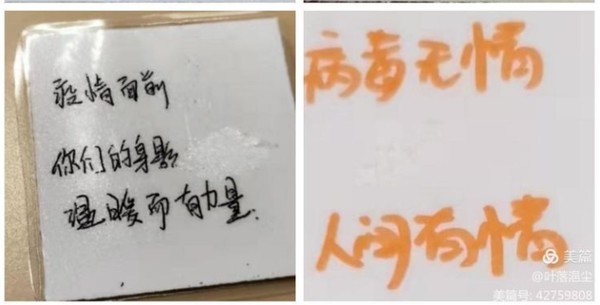 疫情面前
你们的身影
温暖而有力量.
病毒无情
人间有情
美篇
@叶落温尘
美篇号: 42759808